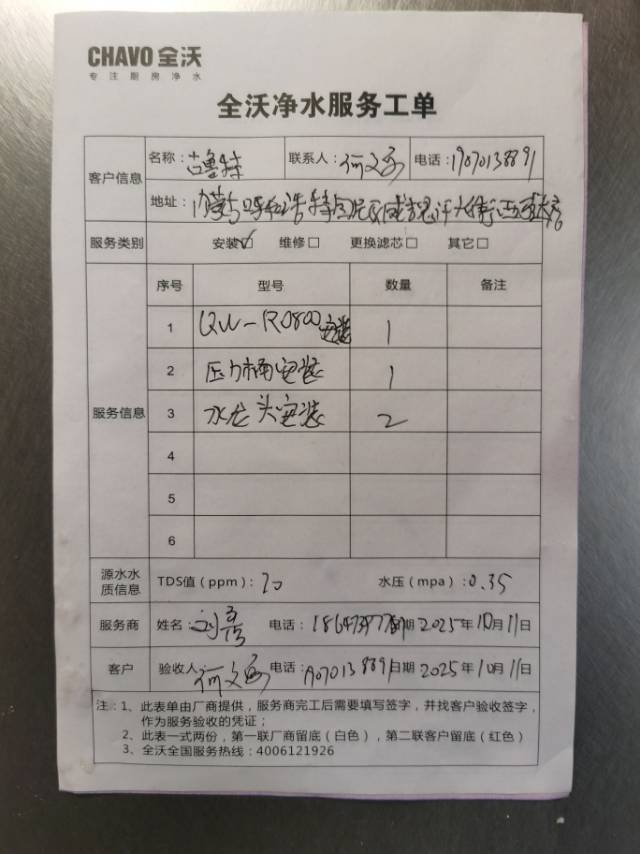 CHAVO 全沃
专注厨房净水
全沃净水服务工单
客户信息
名称: 古鲁特 联系人: 何文 电话: 19070138891
地址: 内蒙古呼和浩特
服务类别 安装☑ 维修□ 更换滤芯□ 其它□
服务信息
序号 型号 数量 备注
1 QW-RO800安装 1
2 压力桶安装 1
3 水龙头安装 2
4
5
6
源水水质信息 TDS值(ppm): 20 水压(mpa): 0.35
服务商 姓名: 刘 电话: 日期 2025年10月11日
客户 验收人 何文 电话: 19070138891 日期 2025年10月11日
注:1、此表单由厂商提供,服务商完工后需要填写签字,并找客户验收签字,
作为服务验收的凭证;
2、此表一式两份,第一联厂商留底(白色),第二联客户留底(红色)
3、全沃全国服务热线:4006121926